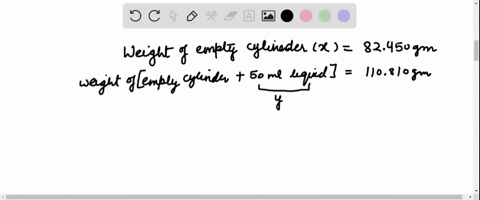 Weight of empty cylinder (x) = 82.450 gm
weight of [empty cylinder + 50 ml liquid] = 110.810 gm
y